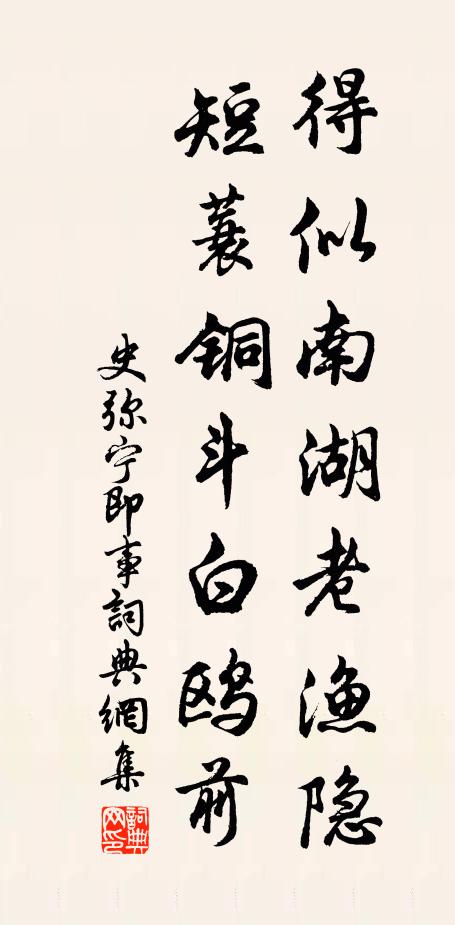 得似南湖老渔隐
短蓑铜斗白鸥前
史弥宁即事詞典網集
詞典網印